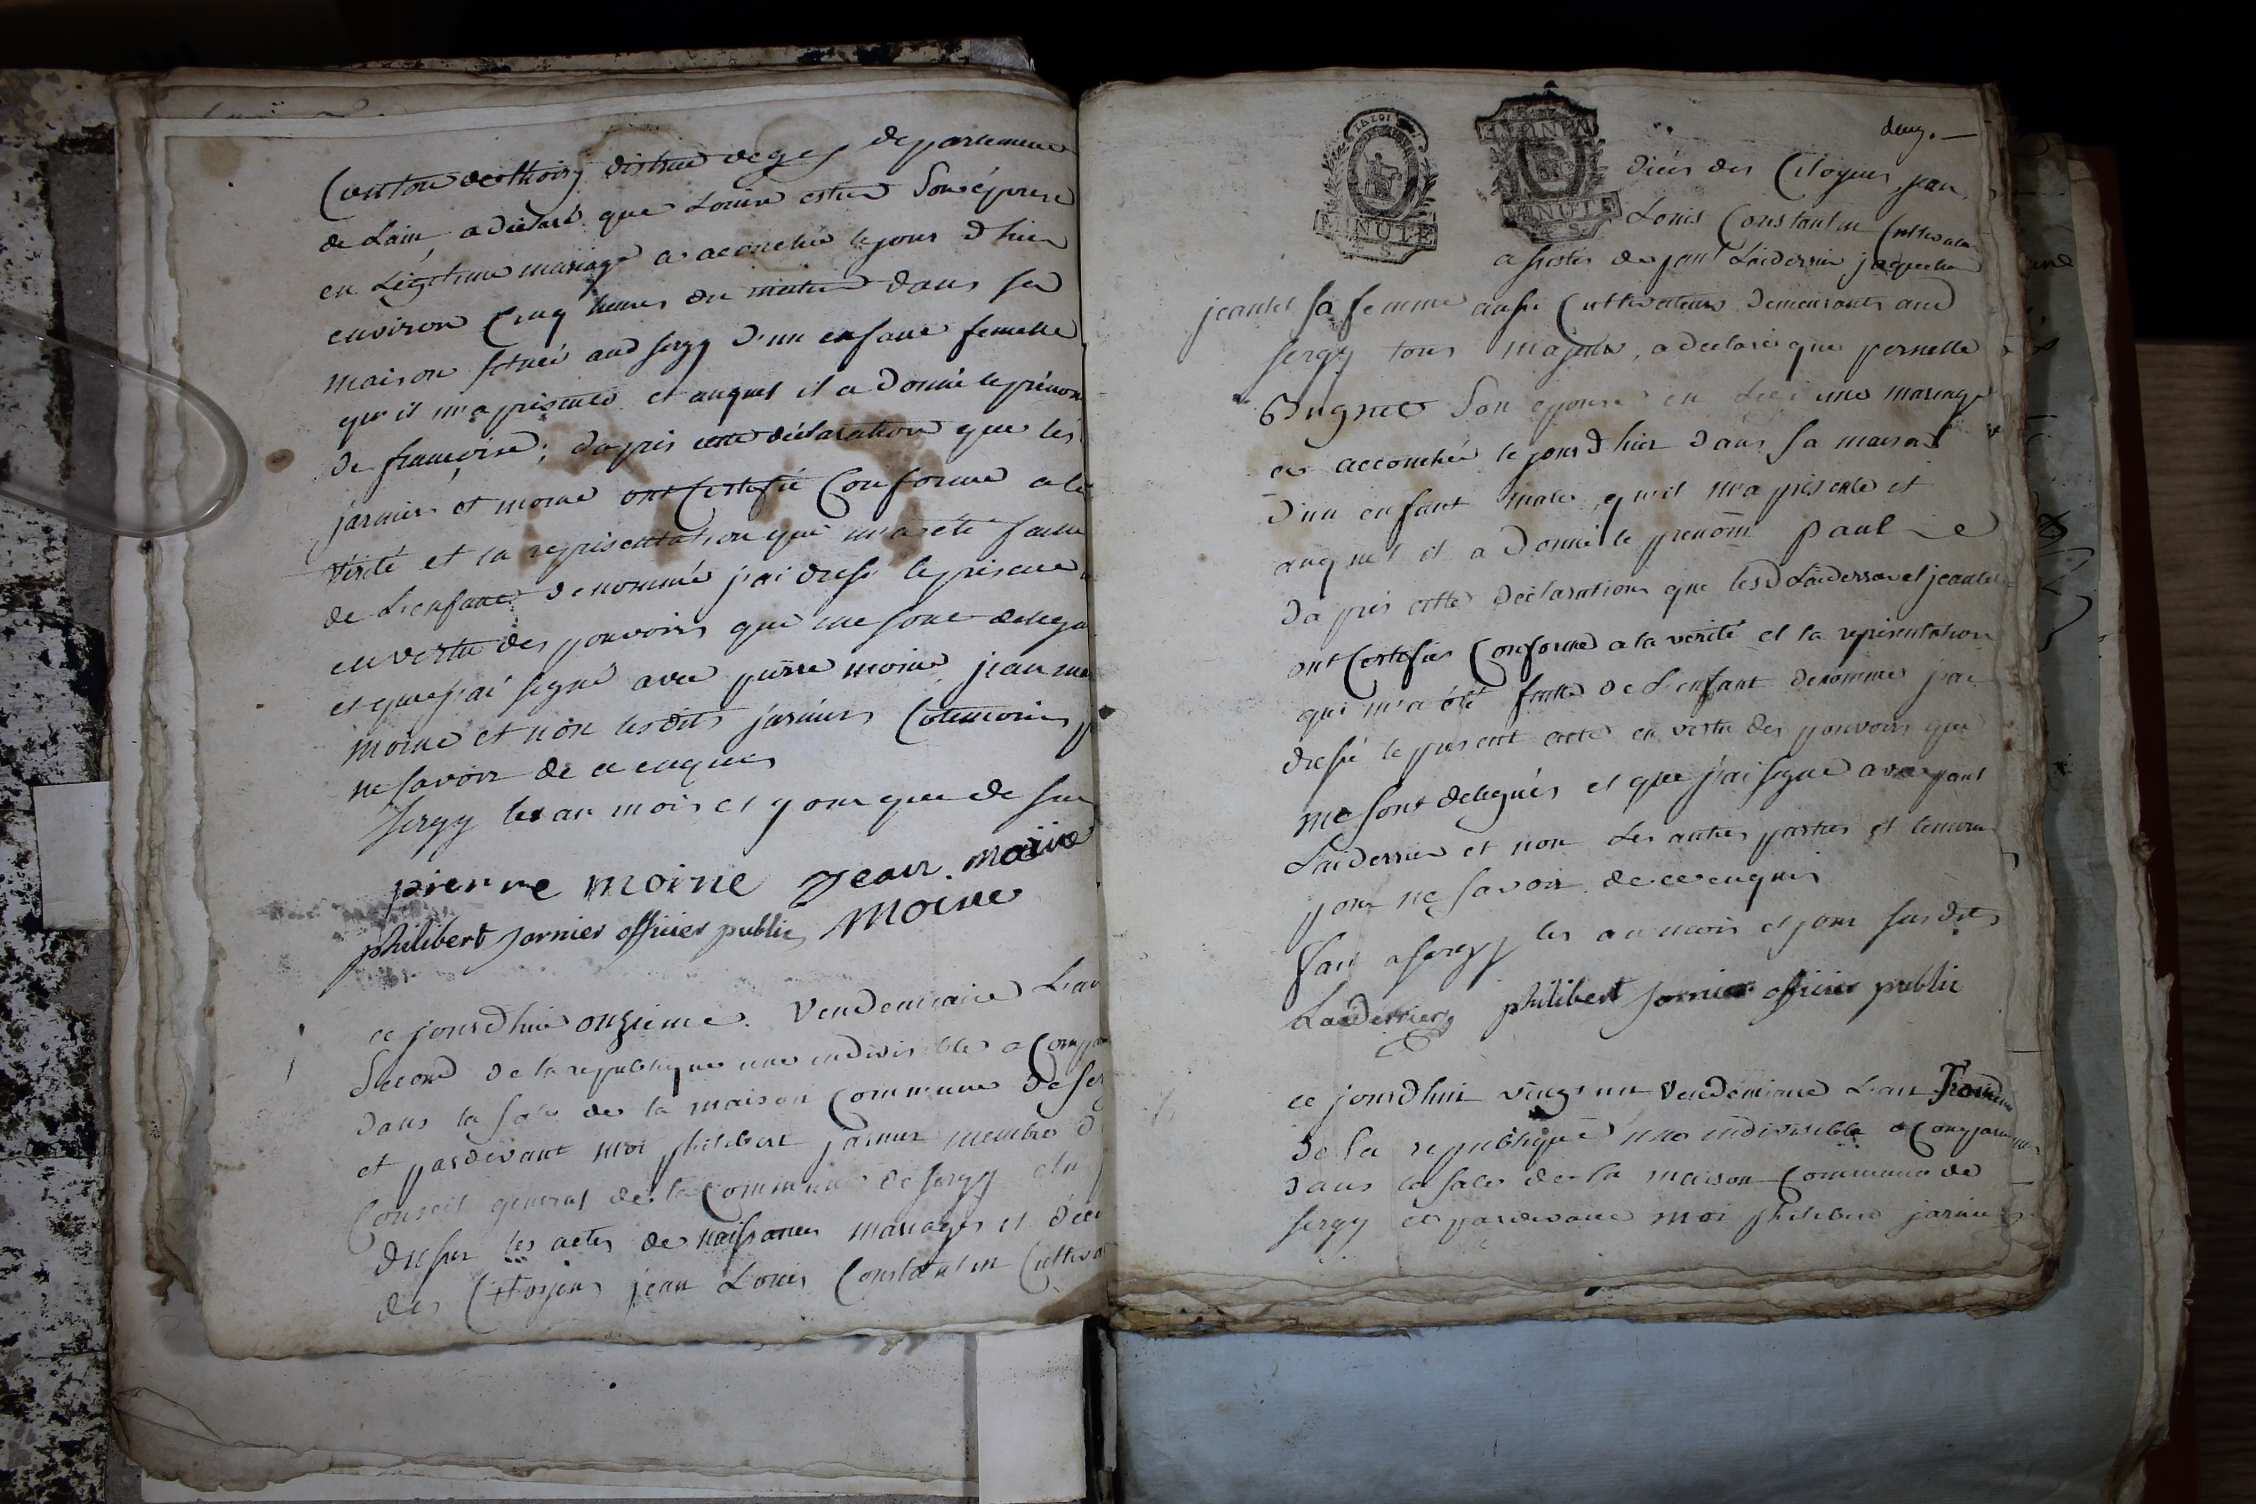 Canton de thoiry district de gex departement
de Lain, a déclaré que Louise son épouse
en Légitime mariage a acouchée le jour d hier
environ Cinq heures du matin dans sa
maison située aud sergy d'un enfant femelle
qu'il m'a présenté et auquel il a donné le prénom
de françoise; dapris cette déclaration que les
jarnier et moine ont Certifié Conforme a la
vérité et la représentation qui m'a été faitte
de L'enfant denommé j'ai dressé le présent
en vertu des pouvoirs qui me sont delegu
et que j'ai signé avec pierre moine jean
moine et non lesdits jarnier
ne savoir de ce enquis
sergy les an mois et jour que de
pierre moine Jean
philibert Jarnier officier public Moine
ce jourdhui onzieme Vendemiaire Lan
Second de la republique une indivisible a Comp
dans la sale de la maison Commune de ser
et pardevant moi philibert jarnier membre d
Conseil general de la Commune de sergy elu
dresser les actes de naissances mariages et décé
des Citoyens jean Louis Constantin Cultiva
deux.
MINUTE
MINUTE
dièes des Citoyens jean
Louis Constantin Cultivateur
assistés de paul Laiderrier
jeantet sa femme aussi Cultivateurs demeurants aud
sergy tous majeurs, a declaré que pernelle
son epouse en mariage
a accouchée le jour d hier dans sa maison
d'un enfant male, qu'il m'a présenté et
auquel il a donné le prenom paul
da prés cette déclaration que lesd Laiderrier et jeantet
ont Certifiés Conforme a la verité et la représentation
qui m'a été faitte de L'enfant denommé j'ai
dressé le présent acte en vertu des pouvoirs qui
me sont delegués et que j'ai signé avec paul
Laiderrier et non Les autres parties et temoins
pour ne savoir de ce enquis
fait a sergy les an mois et jour susdits
Laiderrier philibert Jarnier officier public
ce jourdhui vingt un Vendemiaire Lan
de la republique une indivisible
dans la sale de la maison Commune de
sergy et pardevant moi philibert jarnier